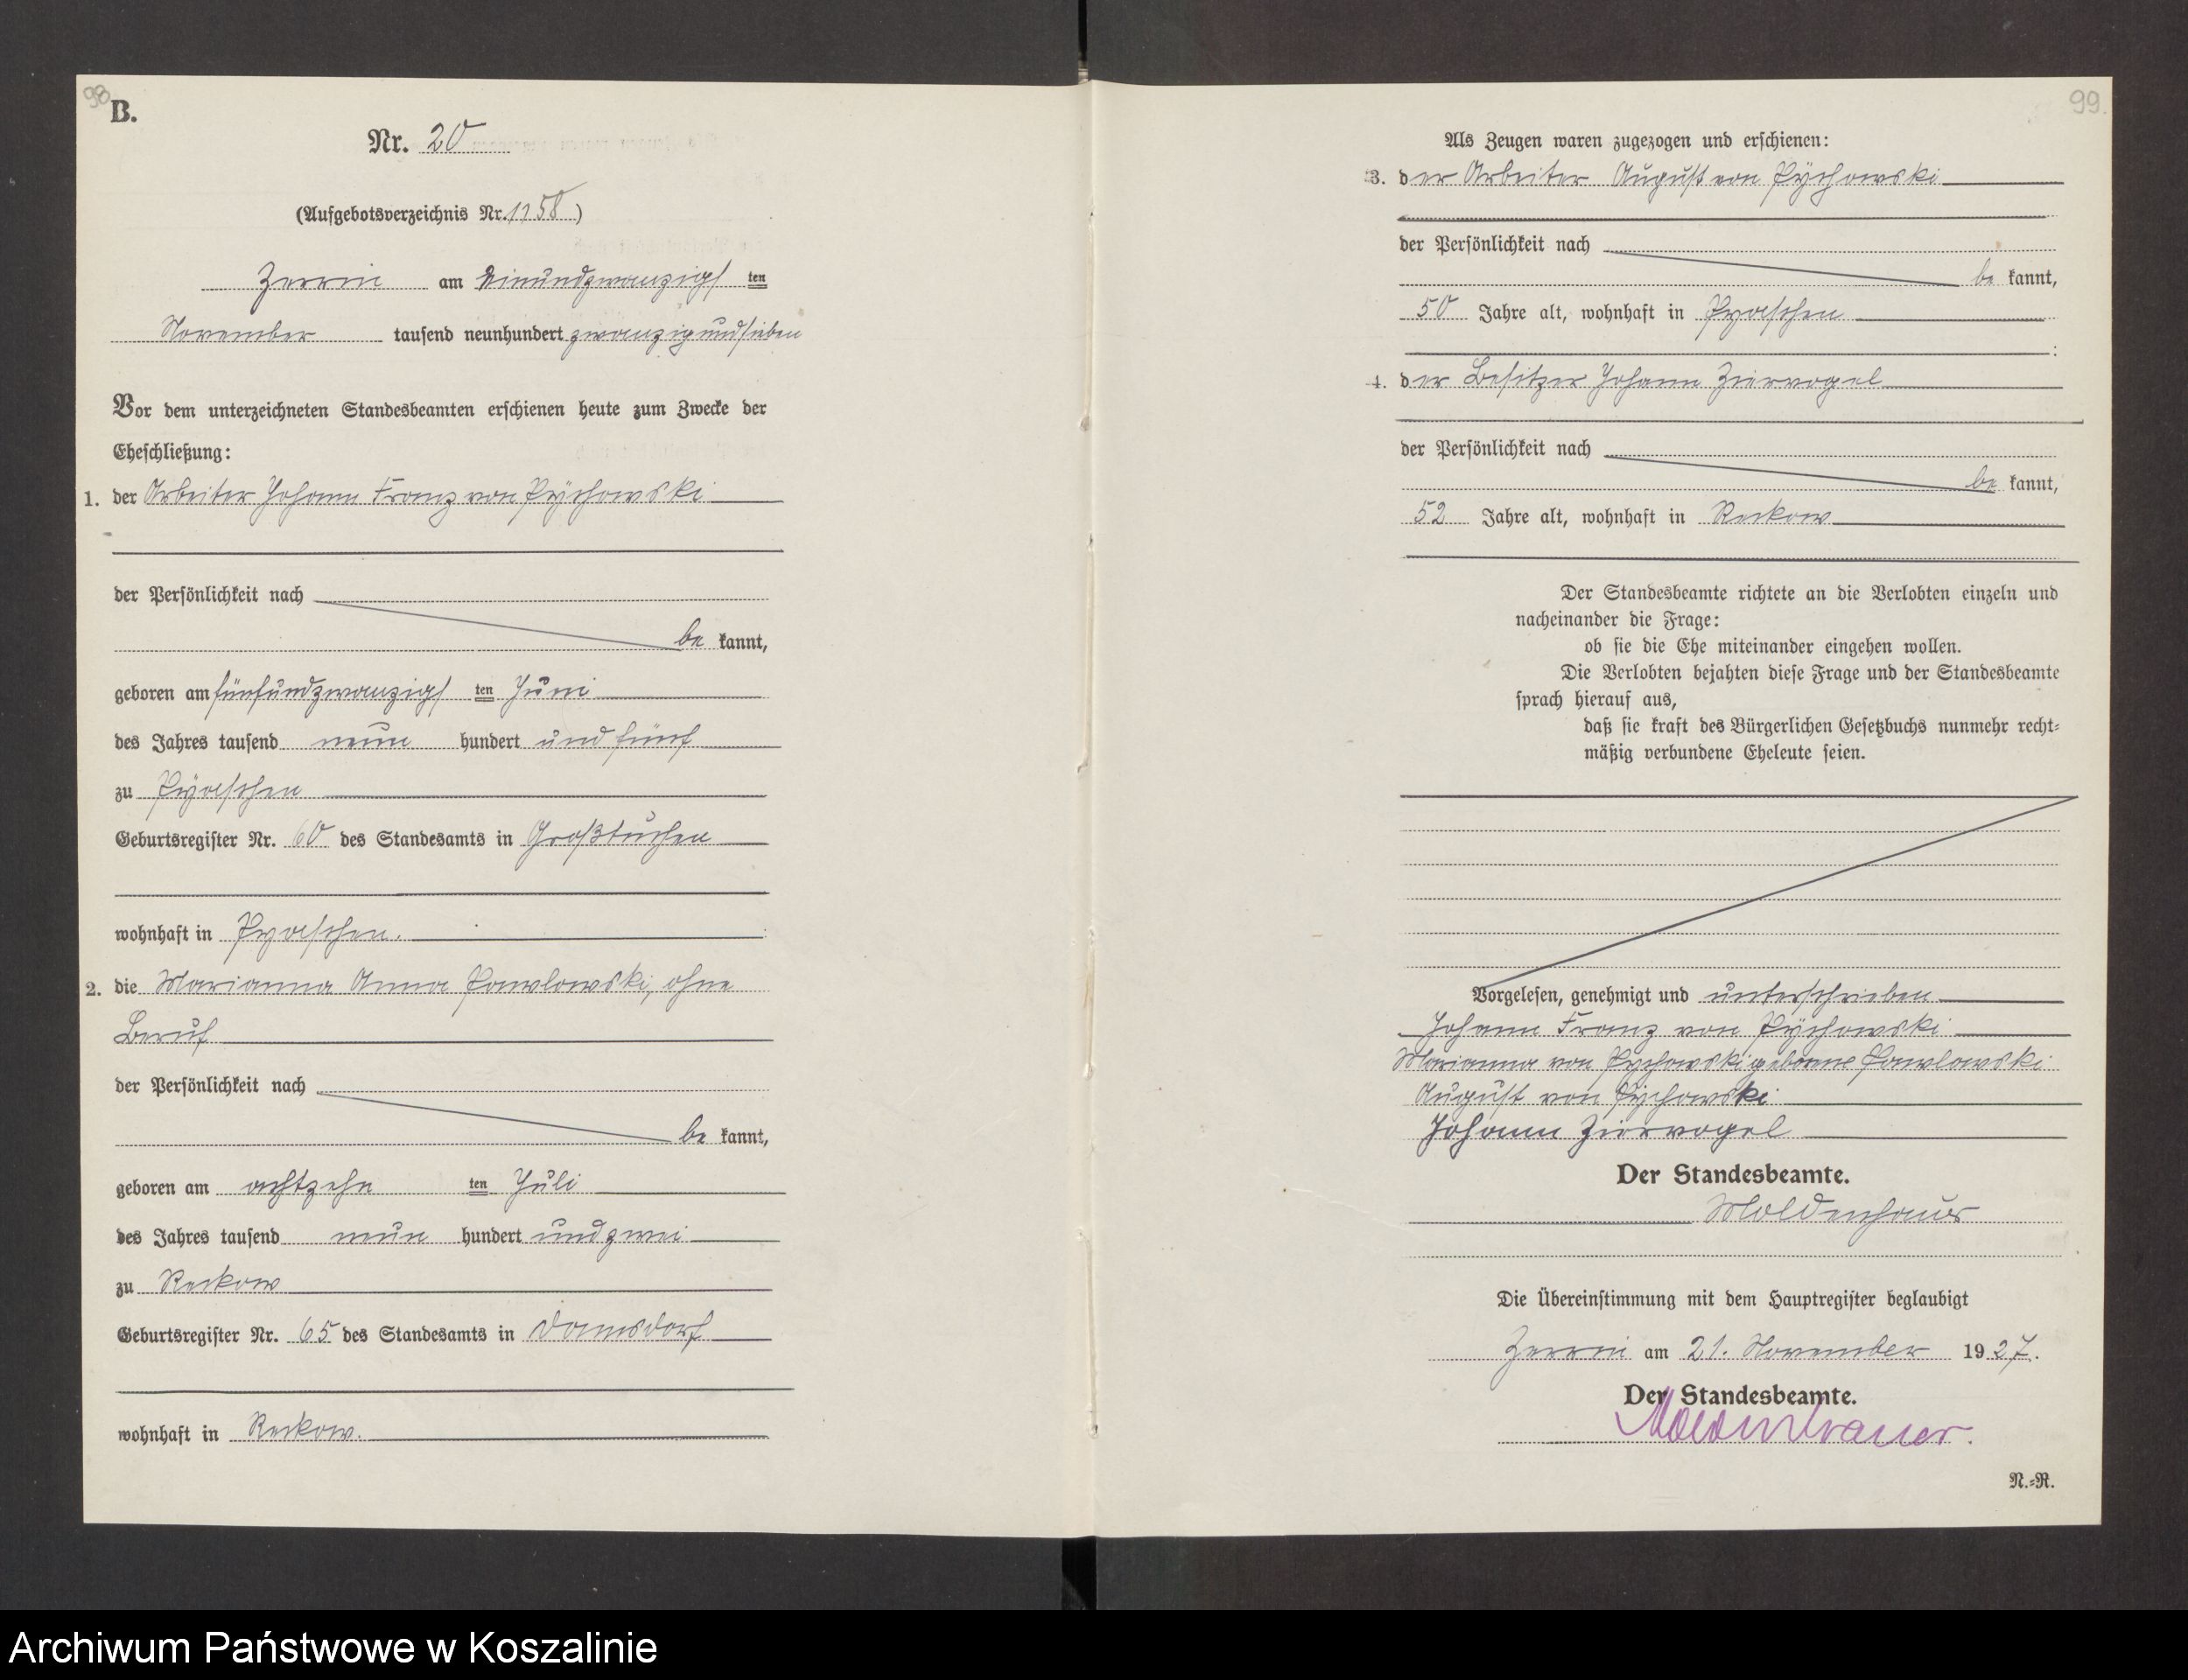 98
B.
Nr. 20
(Aufgebotsverzeichnis Nr. 1158)
Zerrin am Einundzwanzigsten
November tausend neunhundert zwanzigundsieben
Vor dem unterzeichneten Standesbeamten erschienen heute zum Zwecke der
Eheschließung:
1. der Arbeiter Johann Franz von Pÿchowski
der Persönlichkeit nach
bekannt,
geboren am fünfundzwanzigsten Juni
des Jahres tausend neun hundert und fünf
zu Pÿaschen
Geburtsregister Nr. 60 des Standesamts in Großtuchen
wohnhaft in Pyaschen.
2. die Marianna Anna Pawlowski, ohne
Beruf
der Persönlichkeit nach
bekannt,
geboren am achtzehnten Juli
des Jahres tausend neun hundert und zwei
zu Reckow
Geburtsregister Nr. 65 des Standesamts in Damsdorf
wohnhaft in Reckow.
99.
Als Zeugen waren zugezogen und erschienen:
3. der Arbeiter August von Pÿchowski
der Persönlichkeit nach
bekannt,
50 Jahre alt, wohnhaft in Pyaschen
4. der Besitzer Johann Ziervogel
der Persönlichkeit nach
bekannt,
52 Jahre alt, wohnhaft in Reckow
Der Standesbeamte richtete an die Verlobten einzeln und
nacheinander die Frage:
ob sie die Ehe miteinander eingehen wollen.
Die Verlobten bejahten diese Frage und der Standesbeamte
sprach hierauf aus,
daß sie kraft des Bürgerlichen Gesetzbuchs nunmehr recht-
mäßig verbundene Eheleute seien.
Vorgelesen, genehmigt und unterschrieben
Johann Franz von Pÿchowski
Marianna von Pychowski geborene Pawlowski
August von Pÿchowski
Johann Ziervogel
Der Standesbeamte.
Moldenhauer
Die Übereinstimmung mit dem Hauptregister beglaubigt
Zerrin am 21. November 1927.
Der Standesbeamte.
Moldenhauer.
N.-R.
Archiwum Państwowe w Koszalinie